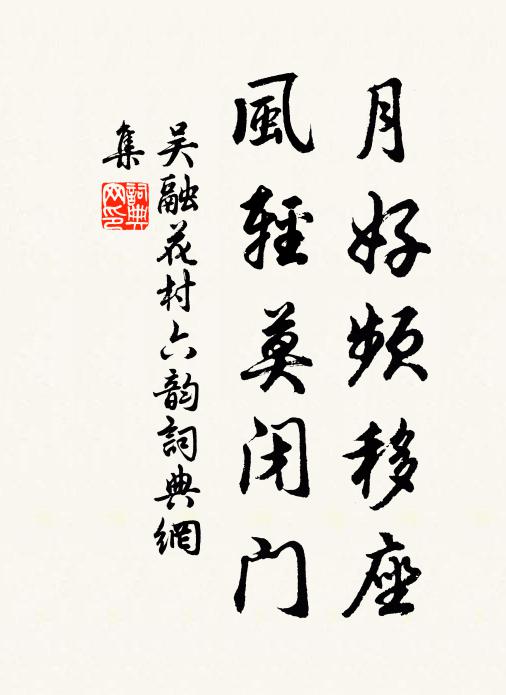 月好频移座
風輕莫闭门
吴融花村六韵詞典網
集
詞典
网印